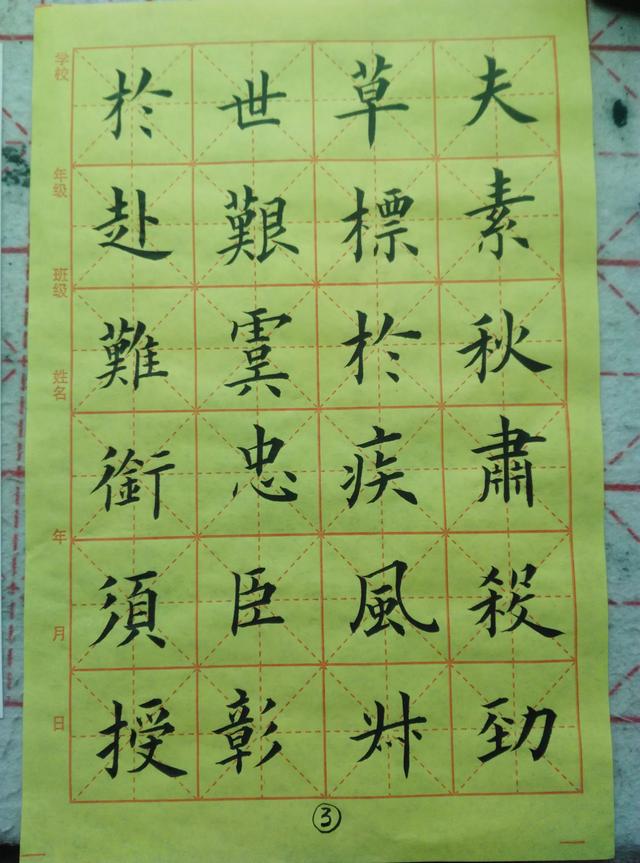 夫素秋肅殺勁
草標於疾風叔
世艱虞忠臣彰
於赴難銜須授
學校
年级
班级
姓名
年
月
日
③